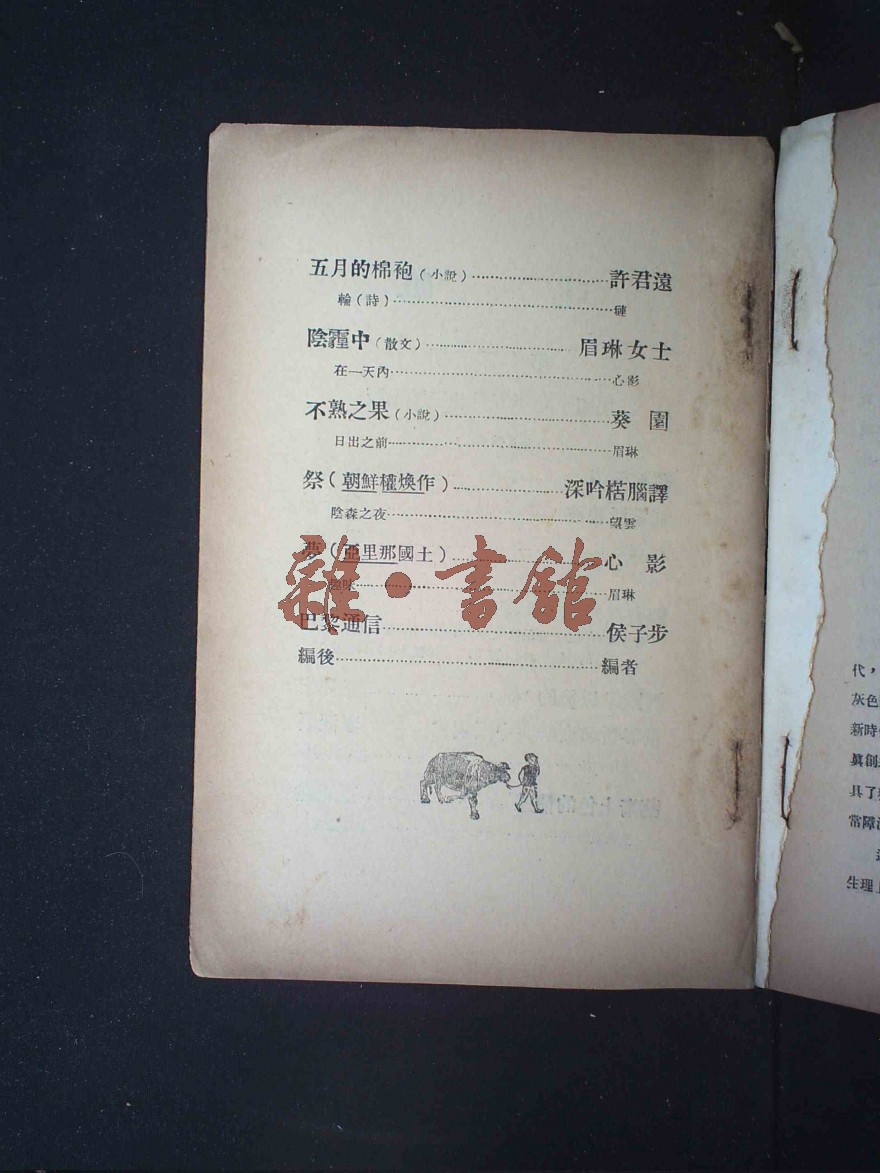 五月的棉袍(小說)……許君遠
輪(詩)……
陰霾中(散文)……眉琳女士
在一天內……心影
不熟之果(小說)……葵園
日出之前……眉琳
祭(朝鮮權煥作)……深吟楛腦譯
陰森之夜……望雲
夢(亞里那國土)……心影
……眉琳
巴黎通信……侯子步
編後……編者
雜·書館
代，
灰色
新時
眞創
具了
常障
生理